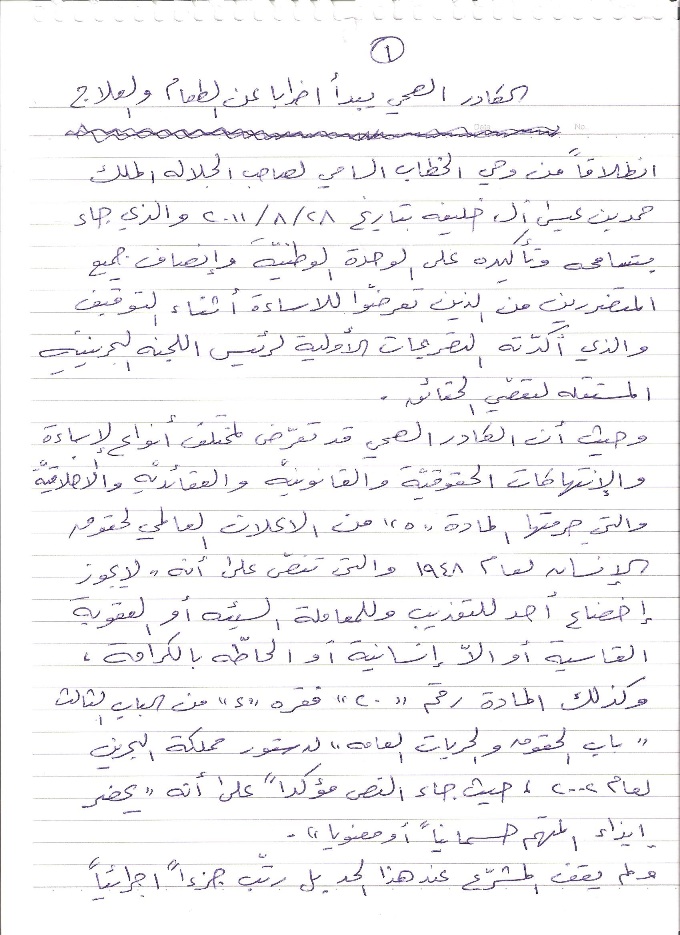 ١
الكادر الصحي يبدأ اضرابا عن الطعام والعلاج
No.
انطلاقاً من وحي الخطاب السامي لصاحب الجلاله الملك
حمد بن عيسى آل خليفه بتاريخ ٢٠١١/٨/٢٨ والذي جاء
بتسامحه وتأكيده على الوحدة الوطنيّة وإنصاف جميع
المتضررين من الذين تعرضّوا للاساءة أثناء التوقيف
والذي أكدّته التصريحات الأولية لرئيس اللجنه البحرينيّه
المستقله لتقصّي الحقائق.
وحيث أن الكادر الصحي قد تعرّض لمختلف أنواع الإساءة
والإنتهاكات الحقوقيّة والقانونيّه والعقائديّه والأخلاقيّة
والتي جرمتها المادة "٥" من الاعلان العالمي لحقوق
الإنسان لعام ١٩٤٨ والتي تنصّ على أنه "لايجوز
إخضاع أحد للتعذيب وللمعاملة السيئه أو العقوبة
القاسية أو الاّ إنسانية أو الحاطّه بالكرامة،
وكذلك المادة رقم "٢٠" فقره "د" من الباب الثالث
"باب الحقوق والحريات العامه" لدستور مملكة البحرين
لعام ٢٠٠٢، حيث جاء النص مؤكداً على أنه "يحضر
إيذاء المتهم جسمانياً أو معنويا".
ولم يقف المشرّع عند هذا الحد بل رتّب جزءاً اجرائياً